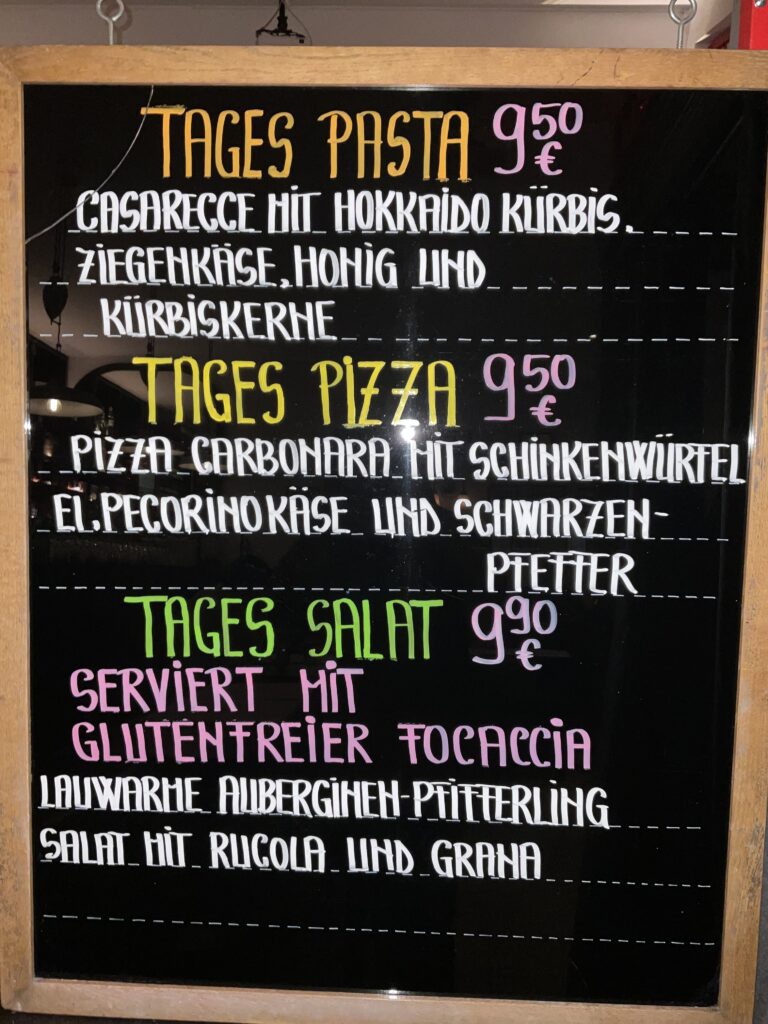 TAGES PASTA 9,50 €
CASARECCE MIT HOKKAIDO KÜRBIS,
ZIEGENKÄSE, HONIG UND
KÜRBISKERNE
TAGES PIZZA 9,50 €
PIZZA CARBONARA MIT SCHINKENWÜRFEL
EI, PECORINO KÄSE UND SCHWARZEN-
PFEFFER
TAGES SALAT 9,90 €
SERVIERT MIT
GLUTENFREIER FOCACCIA
LAUWARME AUBERGINEN-PFIFFERLING
SALAT MIT RUCOLA UND GRANA